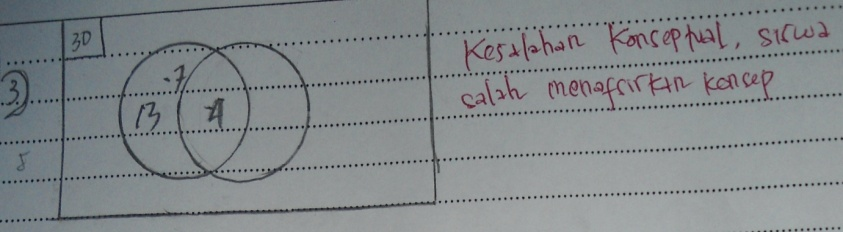 30
3)
.7
13
4
5
Kesalahan Konseptual, siswa
salah menafsirkan konsep